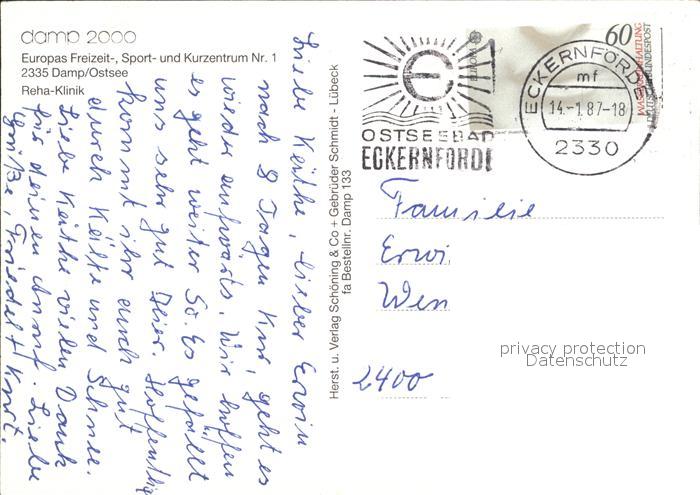 damp 2000
Europas Freizeit-, Sport- und Kurzentrum Nr. 1
2335 Damp/Ostsee
Reha-Klinik
Liebe Käthe, lieber Erwin
nach 8 Tagen Kur, geht es
wieder aufwärts. Wir hoffen
es geht weiter so. Es gefällt
uns sehr gut hier. Hoffentlich
kommt ihr auch gut
durch Kälte und Schnee.
Liebe Käthe vielen Dank
für deinen Anruf. Liebe
Grüße, Friedel + Kurt.
Herst. u. Verlag Schöning & Co + Gebrüder Schmidt - Lübeck
fa Bestellnr. Damp 133
OSTSEEBAD
ECKERNFÖRDE
EUROPA
60
DEUTSCHE BUNDESPOST
ECKERNFÖRDE
mf
14.-1.87-18
2330
Familie
Erwi
Wen
2400
privacy protection
Datenschutz